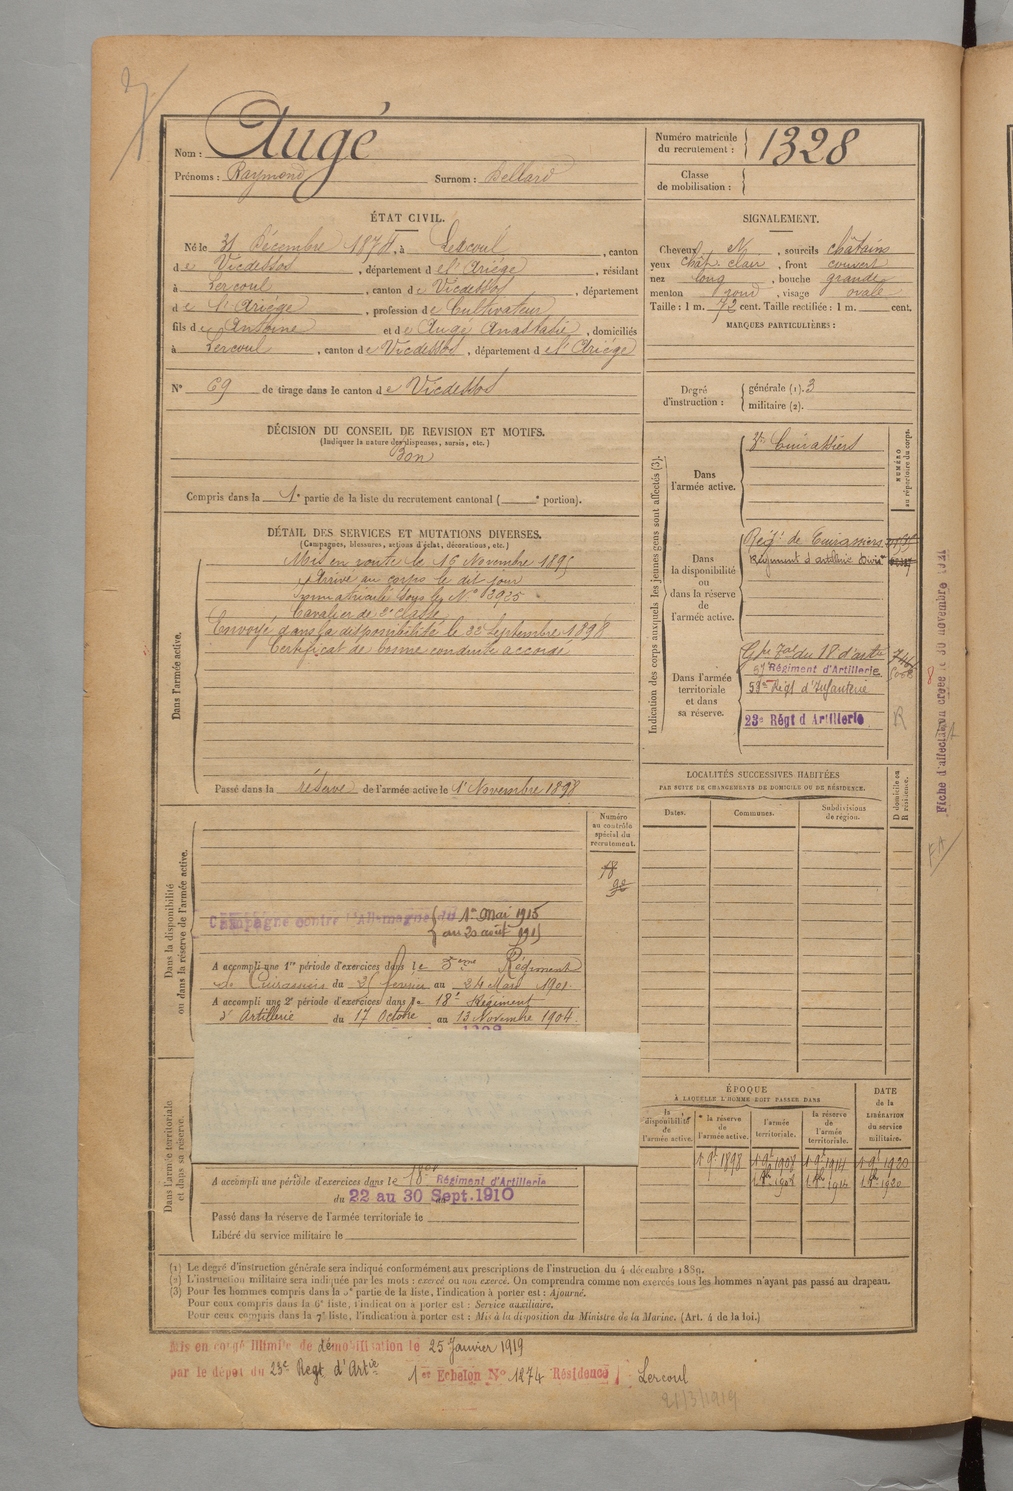 Nom : Augé
Prénoms : Raymond Surnom : Bellard
Numéro matricule du recrutement : 1328
Classe de mobilisation :
ÉTAT CIVIL.
Né le 31 Décembre 1874, à Lercoul, canton
de Vicdessos, département de l'Ariége, résidant
à Lercoul, canton de Vicdessos, département
de l'Ariége, profession de Cultivateur
fils de Antoine et de Augé Anastasie, domiciliés
à Lercoul, canton de Vicdessos, département de l'Ariége
N° 69 de tirage dans le canton de Vicdessos
SIGNALEMENT.
Cheveux N, sourcils châtains
yeux chât. clair, front couvert
nez long, bouche grande
menton rond, visage ovale
Taille : 1 m. 72 cent. Taille rectifiée : 1 m. cent.
MARQUES PARTICULIÈRES :
Degré d'instruction : générale (1). 3
militaire (2).
DÉCISION DU CONSEIL DE REVISION ET MOTIFS.
(Indiquer la nature des dispenses, sursis, etc.)
Bon
Compris dans la 1e partie de la liste du recrutement cantonal ( e portion).
DÉTAIL DES SERVICES ET MUTATIONS DIVERSES.
(Campagnes, blessures, actions d'éclat, décorations, etc.)
Dans l'armée active.
Mis en route le 16 Novembre 1895
Arrivé au corps le dit jour
immatriculé sous le N° 3925
Cavalier de 2e classe
Envoyé dans la disponibilité le 22 Septembre 1898
Certificat de bonne conduite accordé
Passé dans la réserve de l'armée active le 1r Novembre 1898
Indication des corps auxquels les jeunes gens sont affectés (3).
NUMÉRO au répertoire du corps.
Dans l'armée active.
3e Cuirassiers
Dans la disponibilité ou dans la réserve de l'armée active.
Régt de Cuirassiers
Régiment d'artillerie Divre
Dans l'armée territoriale et dans sa réserve.
Gpe Tal du 18 d'artie
57 Régiment d'Artillerie
58me Régt d'Infanterie
23e Régt d'Artillerie R
LOCALITÉS SUCCESSIVES HABITÉES
PAR SUITE DE CHANGEMENTS DE DOMICILE OU DE RÉSIDENCE.
Dates. Communes. Subdivisions de région. D domicile ou R résidence.
Fiche d'affectation créée le 30 novembre 1921
Dans la disponibilité ou dans la réserve de l'armée active.
Numéro au contrôle spécial du recrutement.
18
92
Campagne contre l'Allemagne du 1er Mai 1915
au 20 août 1915
A accompli une 1re période d'exercices dans le 3eme Régiment
de Cuirassiers du 25 février au 24 Mars 1901
A accompli une 2e période d'exercices dans le 18e Régiment
d'Artillerie du 17 Octobre au 13 Novembre 1904.
Dans l'armée territoriale et dans sa réserve.
A accompli une période d'exercices dans le 18e Régiment d'Artillerie
du 22 au 30 Sept. 1910
Passé dans la réserve de l'armée territoriale le
Libéré du service militaire le
ÉPOQUE
À LAQUELLE L'HOMME DOIT PASSER DANS
la disponibilité de l'armée active. la réserve de l'armée active. l'armée territoriale. la réserve de l'armée territoriale.
DATE de la LIBÉRATION du service militaire.
1 9e 1898 1 9e 1908 1 9e 1914 1 9e 1920
(1) Le degré d'instruction générale sera indiqué conformément aux prescriptions de l'instruction du 4 décembre 1889.
(2) L'instruction militaire sera indiquée par les mots : exercé ou non exercé. On comprendra comme non exercés tous les hommes n'ayant pas passé au drapeau.
(3) Pour les hommes compris dans la 5e partie de la liste, l'indication à porter est : Ajourné.
Pour ceux compris dans la 6e liste, l'indication à porter est : Service auxiliaire.
Pour ceux compris dans la 7e liste, l'indication à porter est : Mis à la disposition du Ministre de la Marine. (Art. 4 de la loi.)
Mis en congé illimité de démobilisation le 25 Janvier 1919
par le dépot du 23e Regt d'Artie 1er Echelon N° 1274 Résidence : Lercoul
21/3/1919